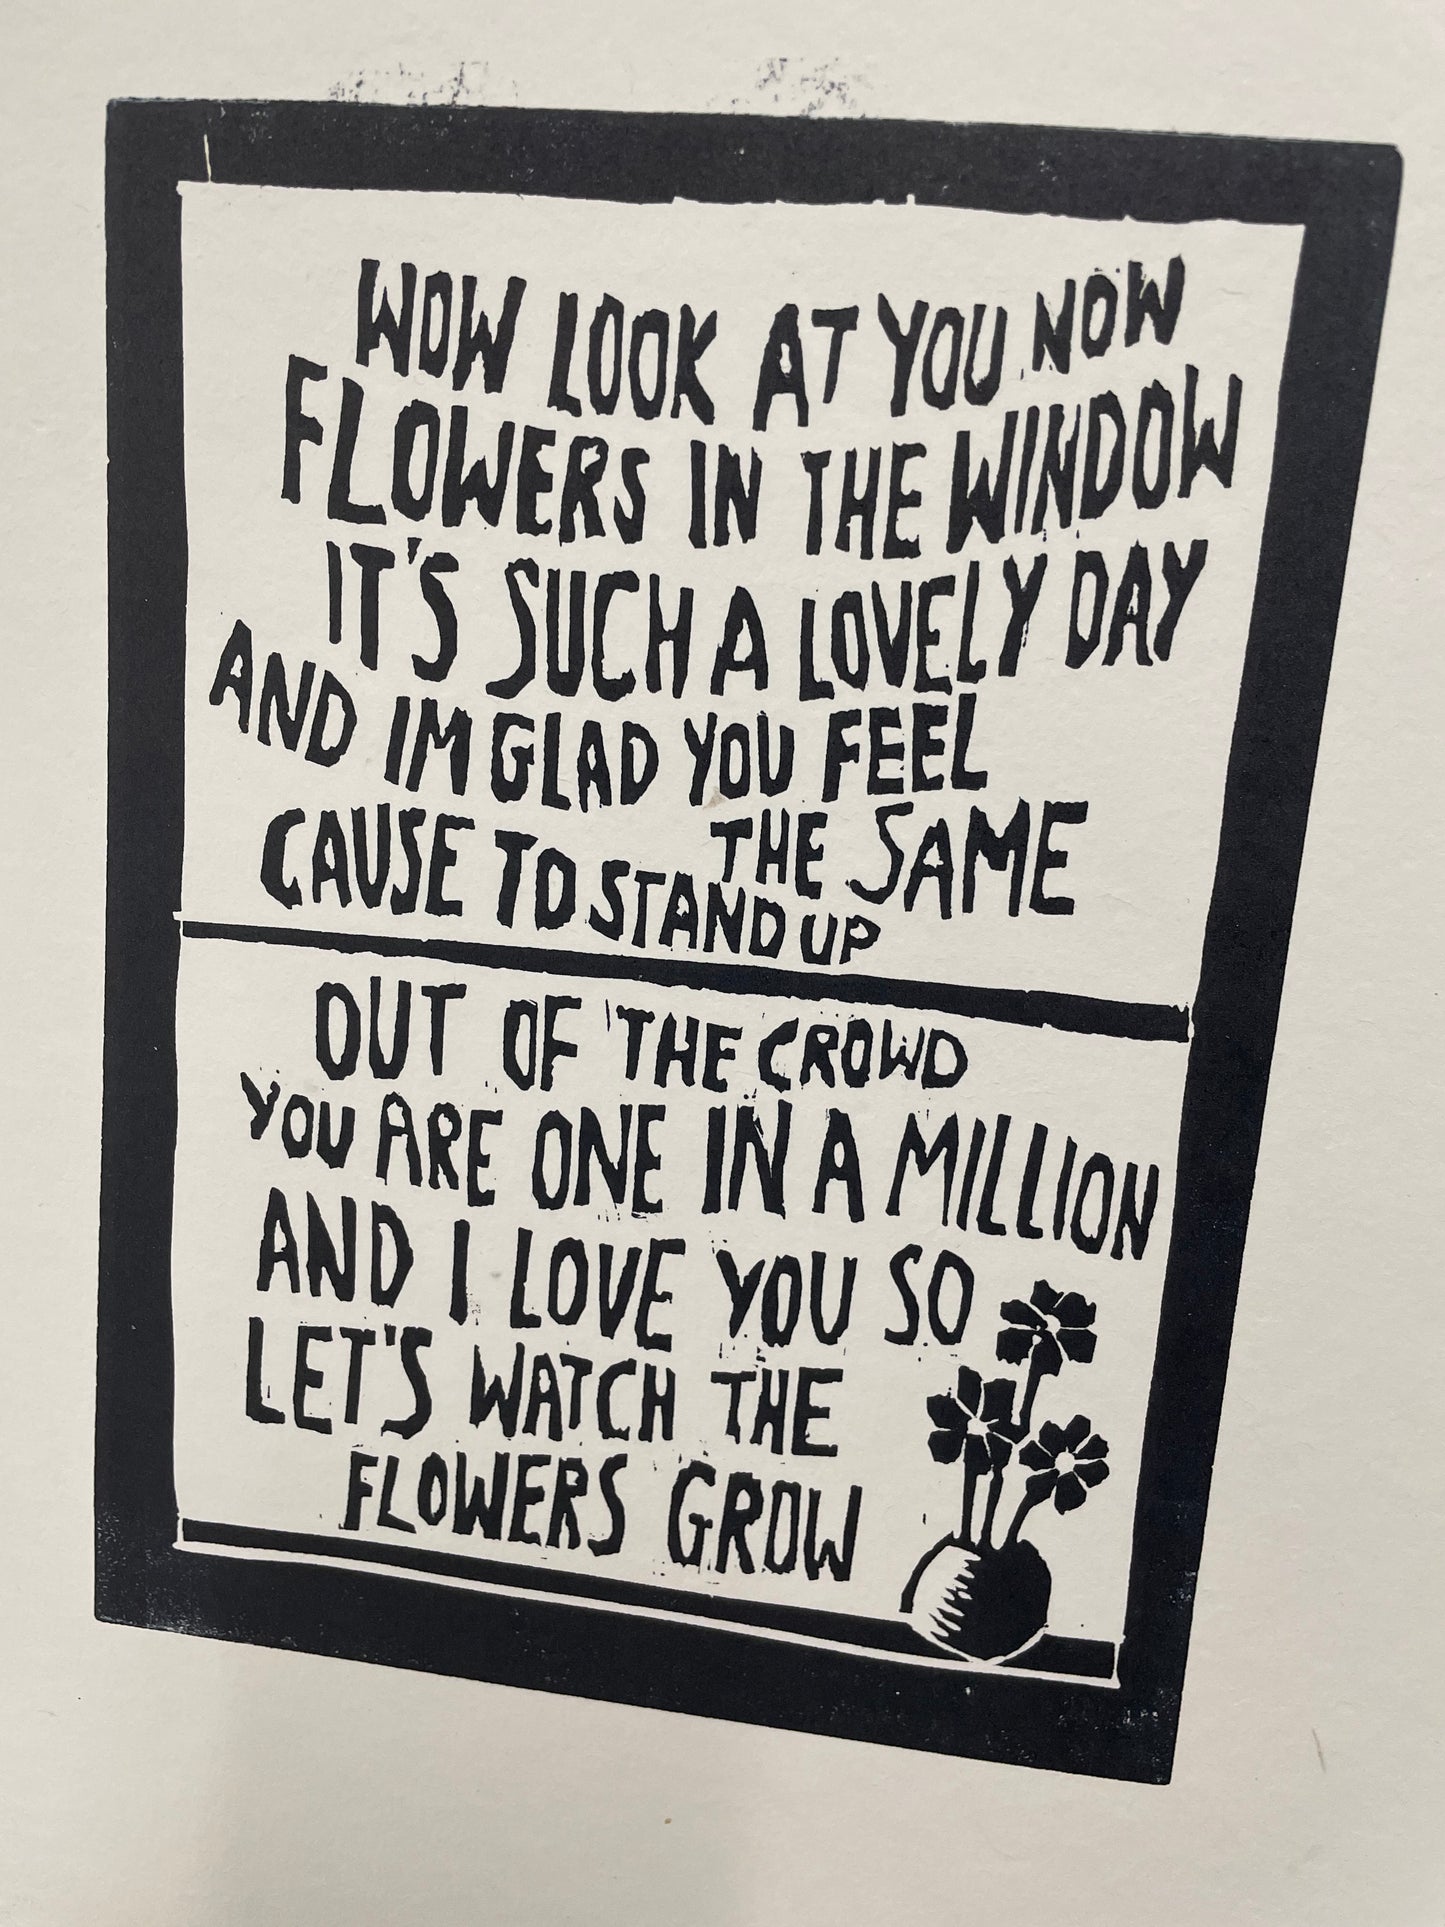 WOW LOOK AT YOU NOW
FLOWERS IN THE WINDOW
IT'S SUCH A LOVELY DAY
AND IM GLAD YOU FEEL
THE SAME
CAUSE TO STAND UP
OUT OF THE CROWD
YOU ARE ONE IN A MILLION
AND I LOVE YOU SO
LET'S WATCH THE
FLOWERS GROW